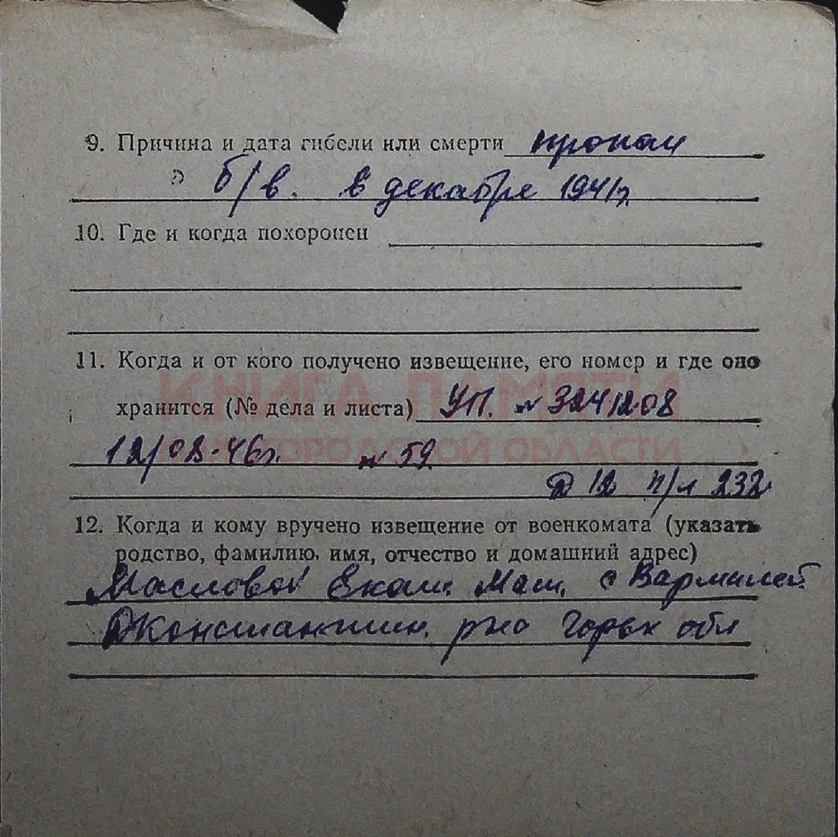 9. Причина и дата гибели или смерти пропал
б/в. в декабре 1941г.
10. Где и когда похоронен
11. Когда и от кого получено извещение, его номер и где оно
КНИГА ПАМЯТИ
хранится (№ дела и листа) УП. № 324/208
НИЖЕГОРОДСКОЙ ОБЛАСТИ
12/08-46г. № 59.
Д 12 п/л 232
12. Когда и кому вручено извещение от военкомата (указать
родство, фамилию, имя, отчество и домашний адрес)
Масловой Екат. Мат. с Вармалей
Дконстантин. рно Горьк обл